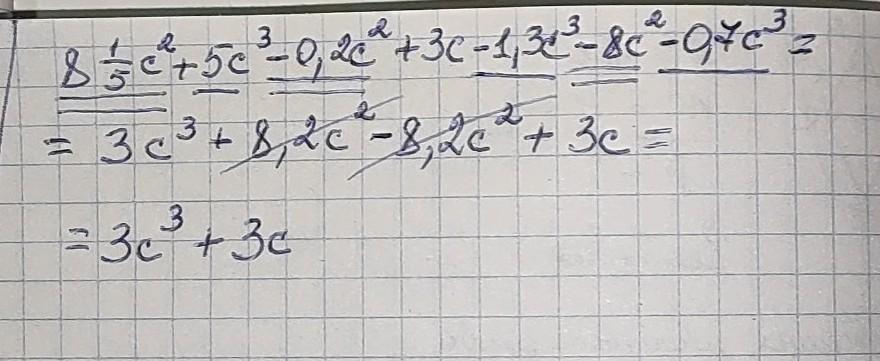 8 1/5 c² + 5c³ - 0,2c² + 3c - 1,3c³ - 8c² - 0,7c³ =
= 3c³ + 8,2c² - 8,2c² + 3c =
= 3c³ + 3c